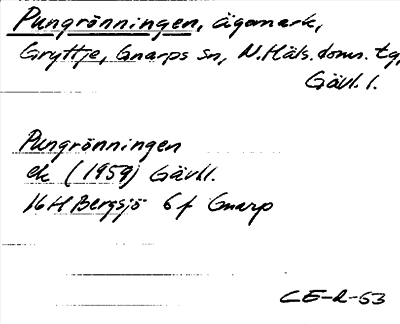 Pungrönningen, ägomark,
Gryttje, Gnarps sn, N. Häls. doms. tg,
Gävl. l.
Pungrönningen
ek (1959) Gävll.
16H Bergsjö 6f Gnarp
CE-R-53